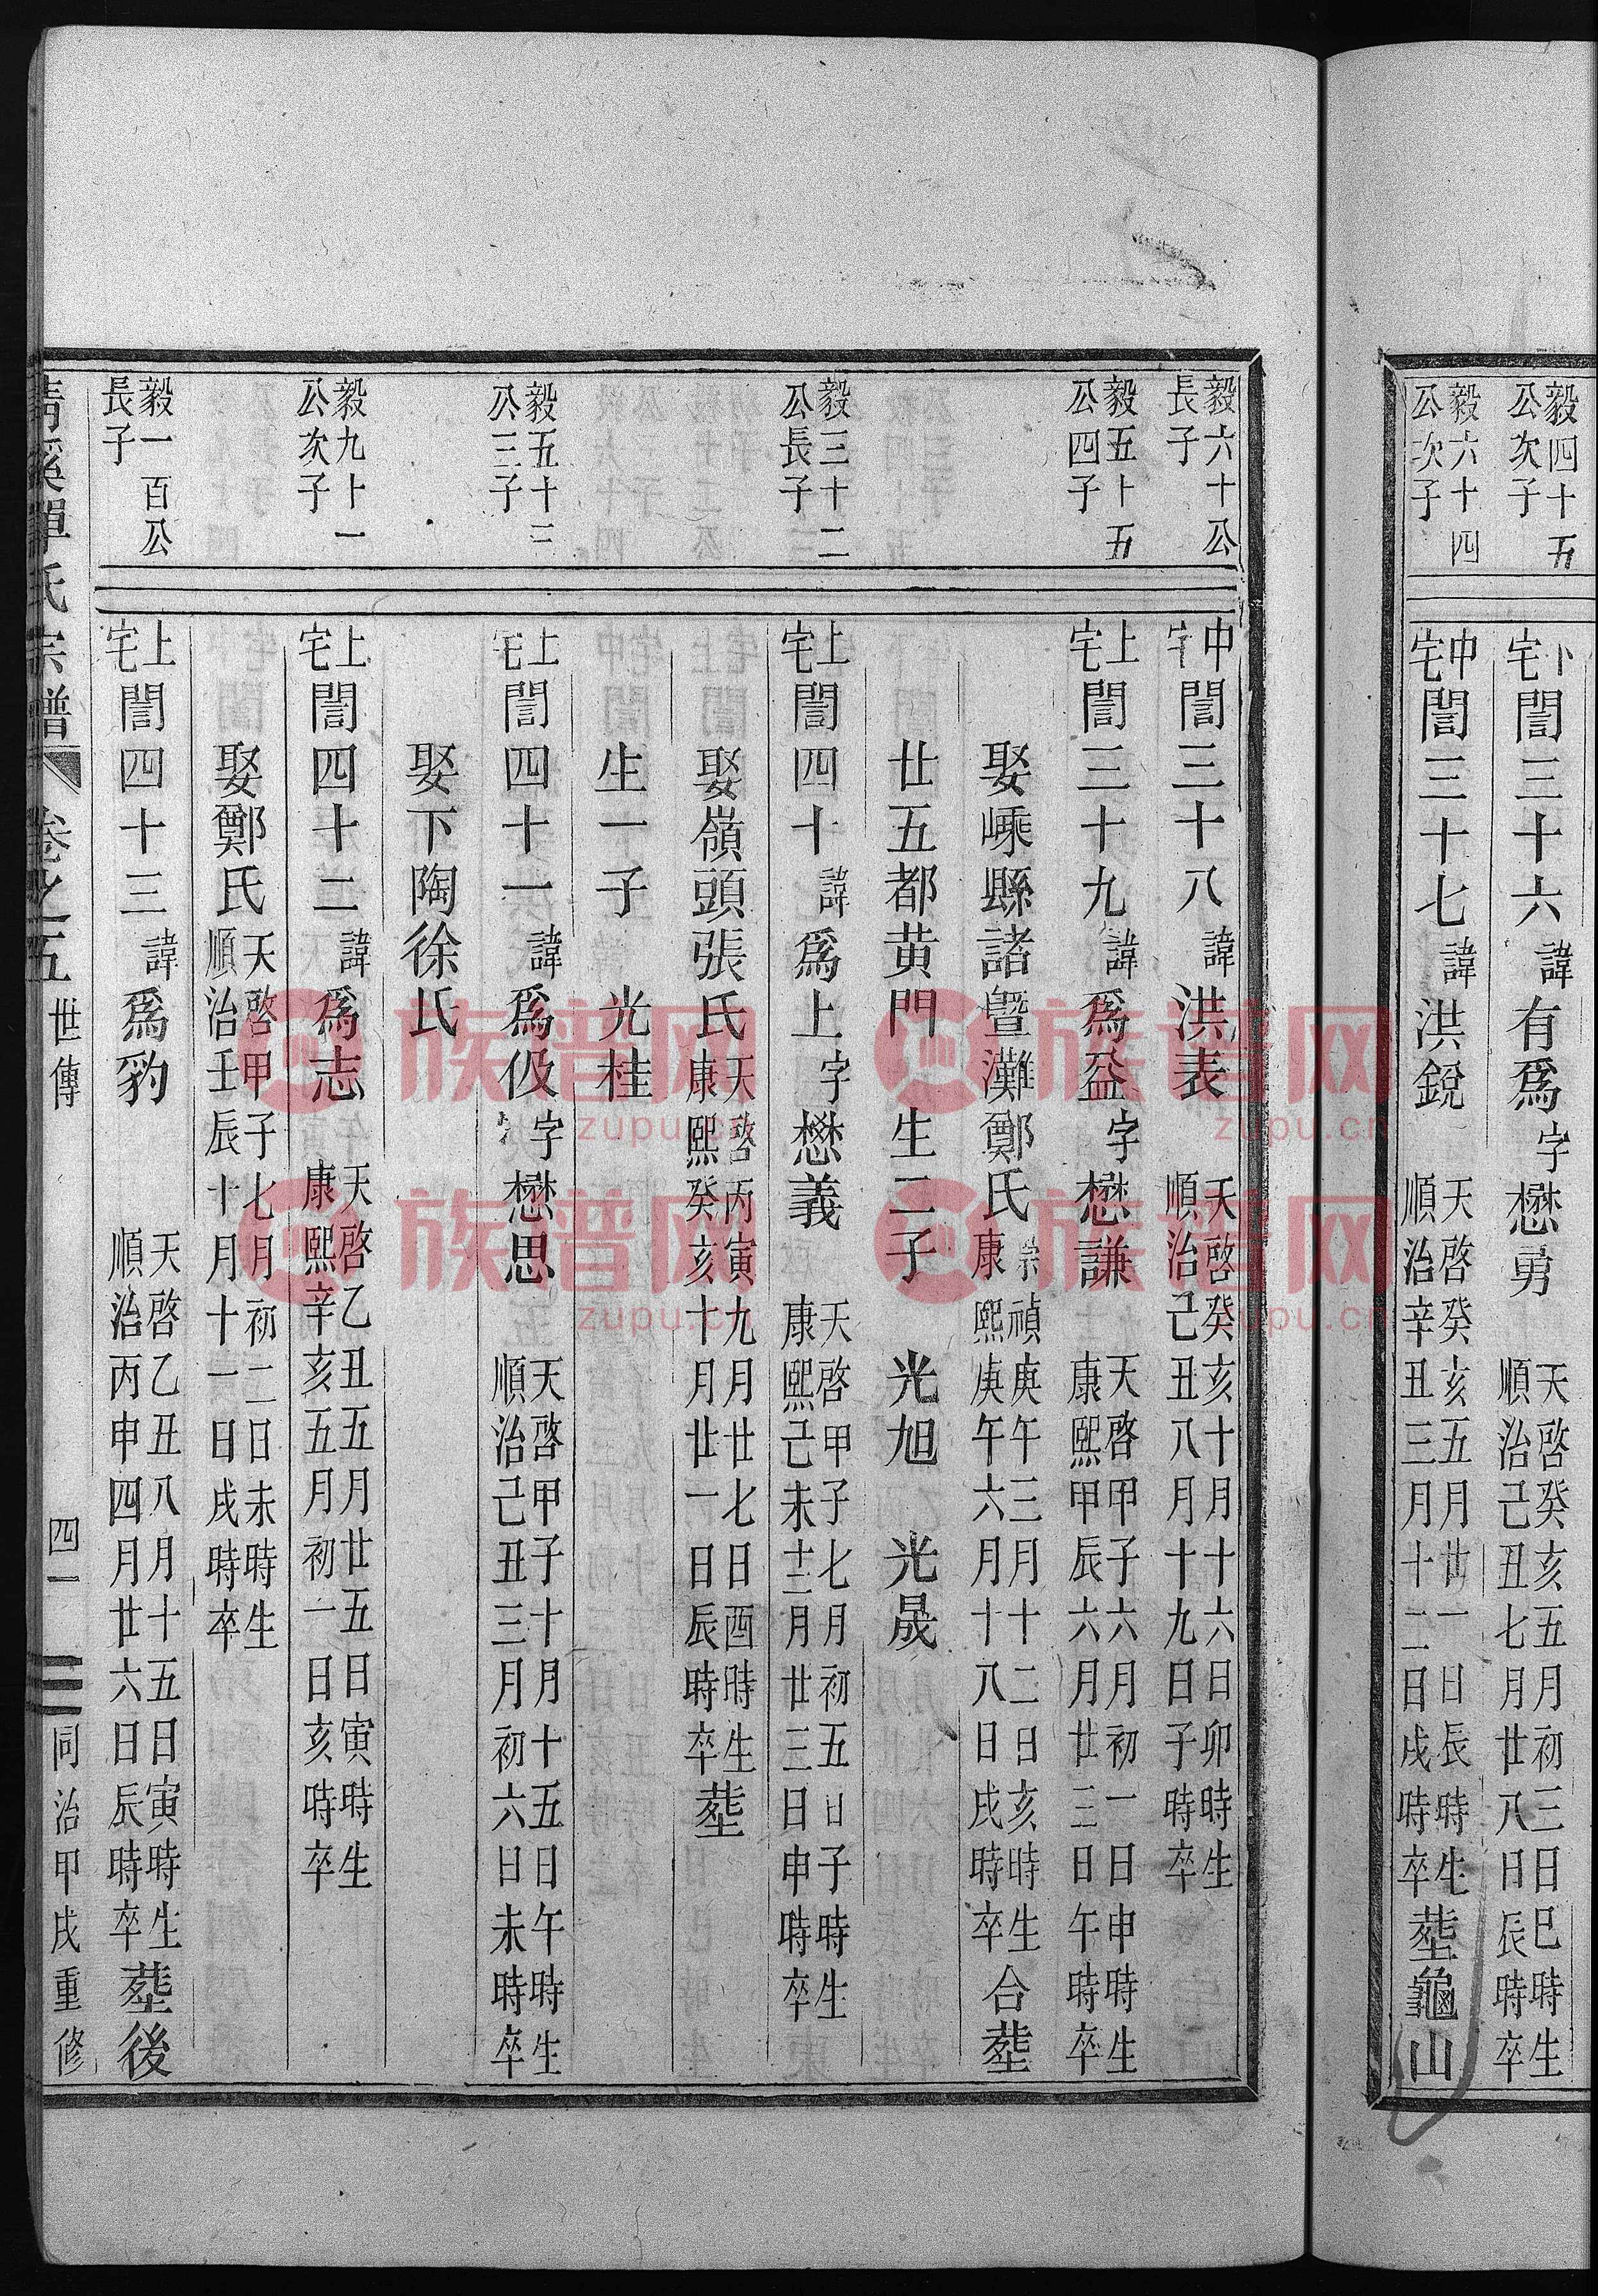 毅四十五
公次子
卜宅誾三十六諱有爲字懋勇
天啓癸亥五月初三日巳時生
順治己丑七月廿八日辰時卒
毅六十四
公次子
中宅誾三十七諱洪銳
天啓癸亥五月廿一日辰時生
順治辛丑三月十二日戌時卒
塟龜山
毅六十公
長子
中宅誾三十八諱洪表
天啓癸亥十月十六日卯時生
順治己丑八月十九日子時卒
毅五十五
公四子
上宅誾三十九諱爲益字懋謙
天啓甲子六月初一日申時生
康熙甲辰六月廿三日午時卒
娶嵊縣諸暨灘鄭氏
崇禎庚午三月十二日亥時生
康熙庚午六月十八日戌時卒
合塟
廿五都黄門 生二子 光旭 光晟
毅三十二
公長子
上宅誾四十諱爲上字懋義
天啓甲子七月初五日子時生
康熙己未十二月廿三日申時卒
娶嶺頭張氏
天啓丙寅九月廿七日酉時生
康熙癸亥十月廿一日辰時卒
塟
生一子 光桂
毅五十三
公三子
上宅誾四十一諱爲伋字懋思
天啓甲子十月十五日午時生
順治己丑三月初六日未時卒
娶下陶徐氏
毅九十一
公次子
上宅誾四十二諱爲志
天啓乙丑五月廿五日寅時生
康熙辛亥五月初一日亥時卒
娶鄭氏
天啓甲子七月初二日未時生
順治壬辰十月十一日戌時卒
毅一百公
長子
上宅誾四十三諱爲豹
天啓乙丑八月十五日寅時生
順治丙申四月廿六日辰時卒
塟後
清溪單氏宗譜 卷之五 世傳 四一 同治甲戌重修
族谱网
zupu.cn
族谱网
zupu.cn
族谱网
zupu.cn
族谱网
zupu.cn